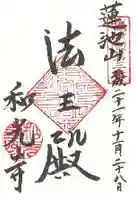 蓮池山
二十一年十月二十八日
法王殿
和光寺